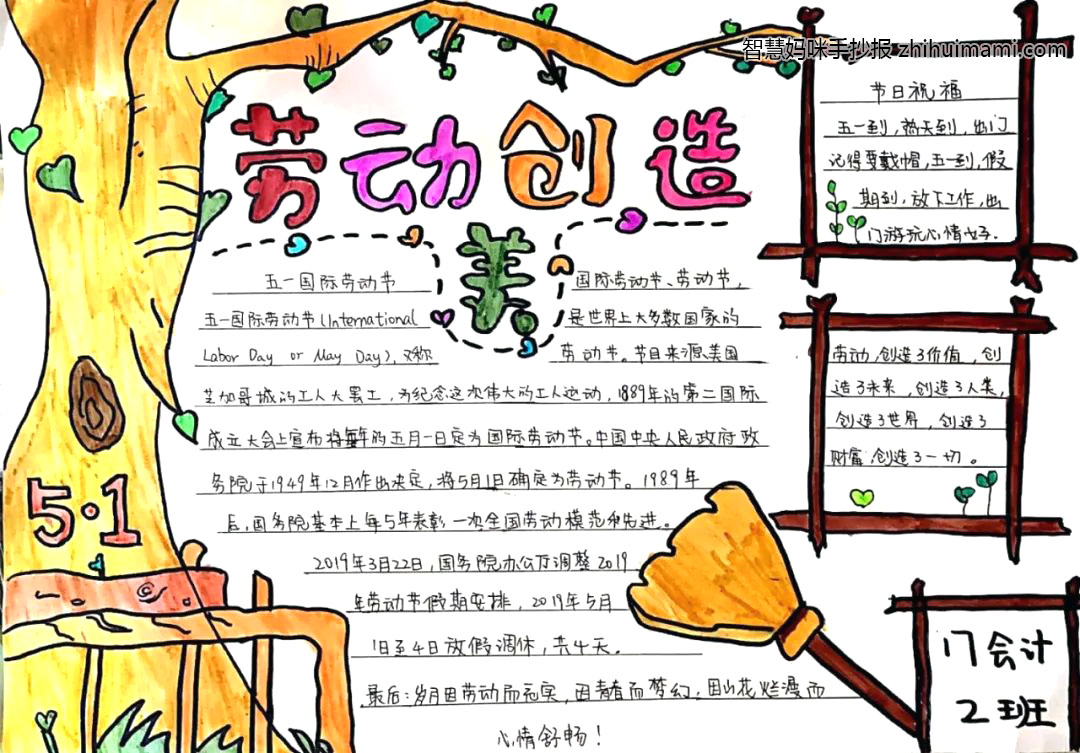 智慧妈咪手抄报 zhihuimami.com
劳动创造
美
五一国际劳动节
五一国际劳动节(International
Labor Day or May Day),又称
国际劳动节、劳动节,
是世界上大多数国家的
劳动节。节日来源美国
芝加哥城的工人大罢工,为纪念这次伟大的工人运动,1889年的第二国际
成立大会上宣布将每年的五月一日定为国际劳动节。中国中央人民政府政
务院于1949年12月作出决定,将5月1日确定为劳动节。1989年
后,国务院基本上每5年表彰一次全国劳动模范和先进。
2019年3月22日,国务院办公厅调整2019
年劳动节假期安排,2019年5月
1日至4日放假调休,共4天。
最后:岁月因劳动而充实,因青春而梦幻,因山花烂漫而
心情舒畅!
节日祝福
五一到,热天到,出门
记得要戴帽,五一到,假
期到,放下工作,出
门游玩心情好.
劳动,创造了价值,创
造了未来,创造了人类,
创造了世界,创造了
财富,创造了一切。
5·1
17会计
2班